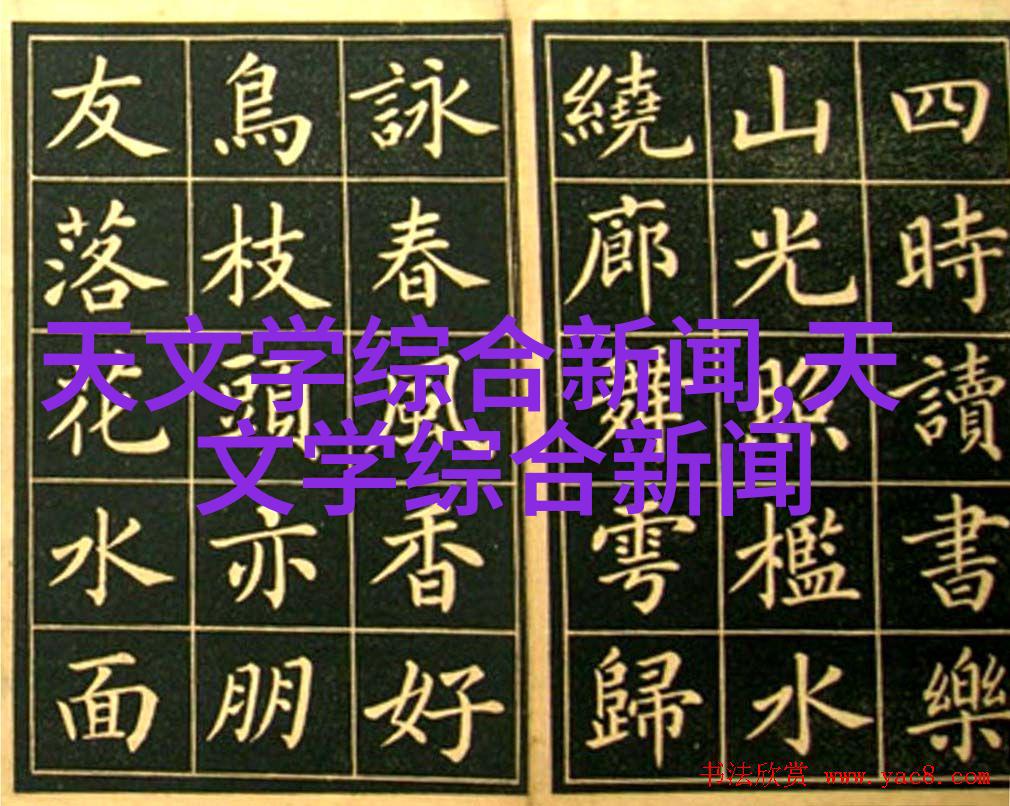 四時讀書樂
山光照檻水
繞廊舞雩歸
詠春風香好
鳥枝頭亦朋
友落花水面
天文学综合新闻,天
文学综合新闻
书法欣赏 www.yac8.com